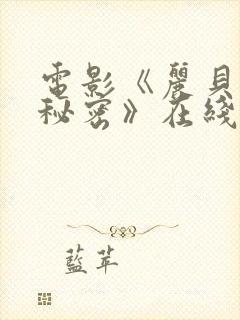 電影《麗貝
秘密》在綫
藍苹